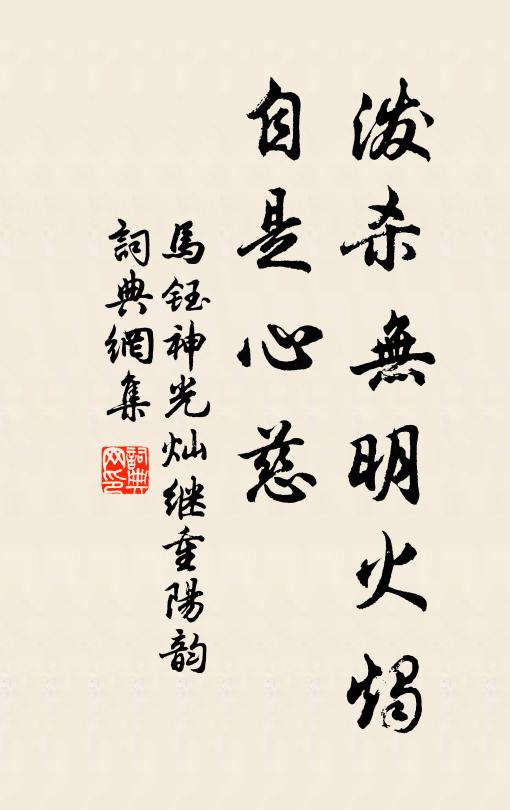 泼杀無明火燭
自是心慈
馬鈺神光灿继重陽韵
詞典網集
詞典网印